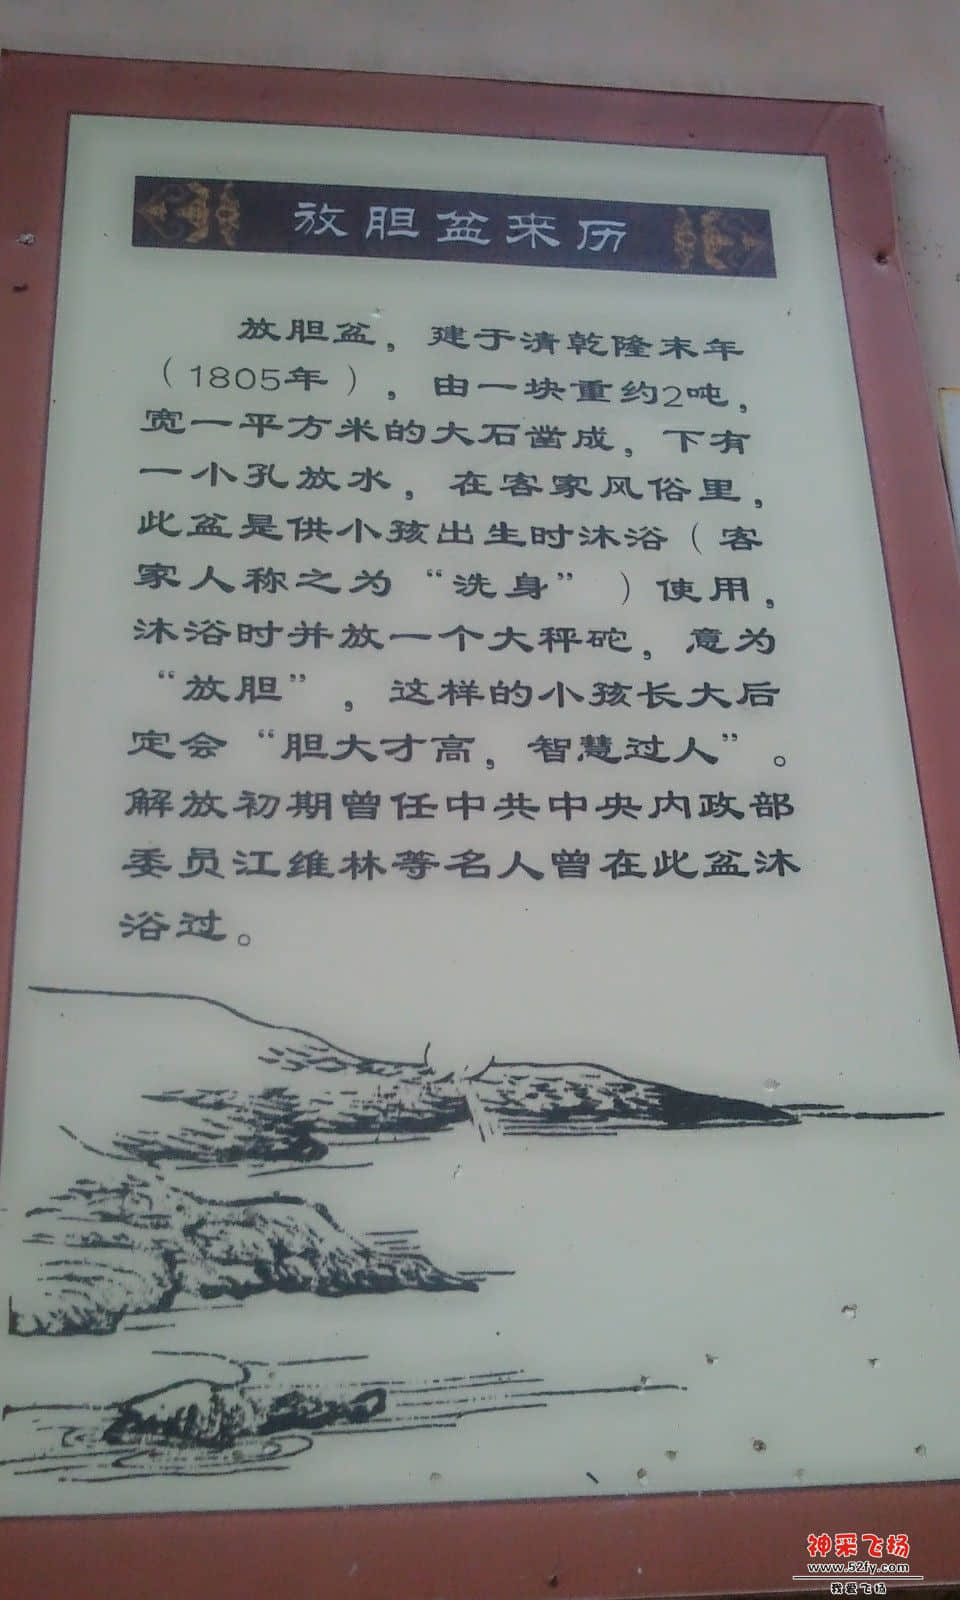 放胆盆来历
放胆盆，建于清乾隆末年
（1805年），由一块重约2吨，
宽一平方米的大石凿成，下有
一小孔放水，在客家风俗里，
此盆是供小孩出生时沐浴（客
家人称之为“洗身”）使用，
沐浴时并放一个大秤砣，意为
“放胆”，这样的小孩长大后
定会“胆大才高，智慧过人”。
解放初期曾任中共中央内政部
委员江维林等名人曾在此盆沐
浴过。
神采飞扬
www.52fy.com
我爱飞扬